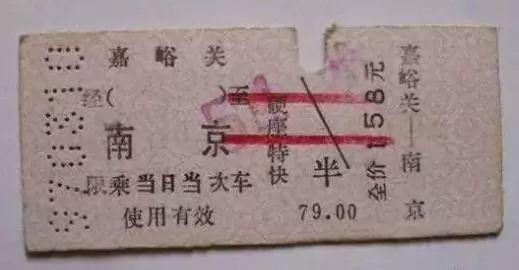 嘉峪关
经( )至
南京
限乘当日当次车
使用有效
硬座特快
半
79.00
全价158元
嘉峪关—南京